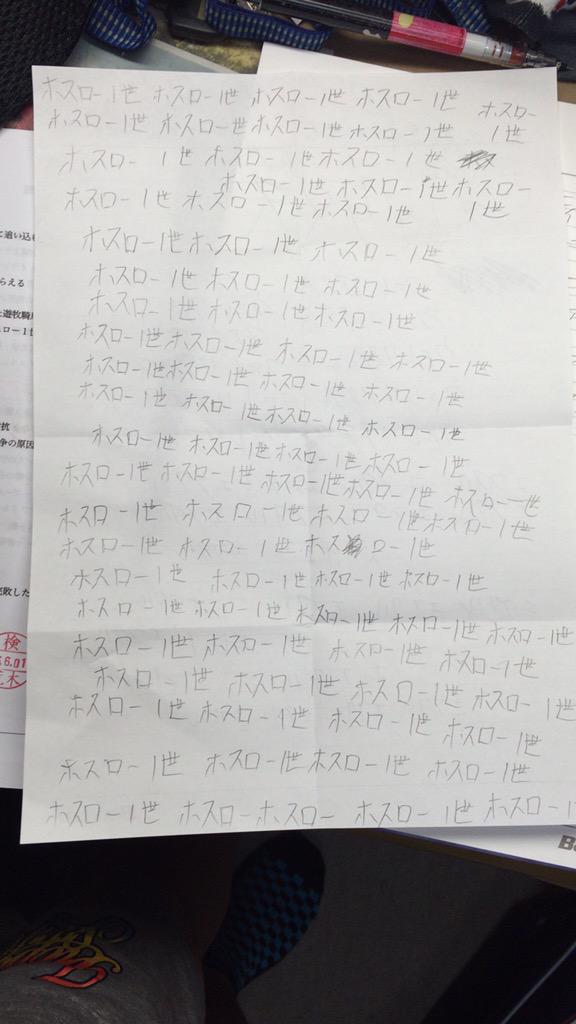 ホスロー1世 ホスロー1世 ホスロー1世 ホスロー1世
ホスロー1世 ホスロー世 ホスロー1世 ホスロー1世 ホスロー1世
ホスロー1世 ホスロー1世 ホスロー1世
ホスロー1世 ホスロー1世 ホスロー1世
ホスロー1世 ホスロー1世 ホスロー1世
ホスロー1世 ホスロー1世 ホスロー1世
ホスロー1世 ホスロー1世 ホスロー1世
ホスロー1世 ホスロー1世 ホスロー1世
ホスロー1世 ホスロー1世 ホスロー1世 ホスロー1世
ホスロー1世 ホスロー1世 ホスロー1世 ホスロー1世
ホスロー1世 ホスロー1世 ホスロー1世 ホスロー1世
ホスロー1世 ホスロー1世 ホスロー1世 ホスロー1世
ホスロー1世 ホスロー1世 ホスロー1世 ホスロー1世 ホスロー世
ホスロー1世 ホスロー1世 ホスロー1世 ホスロー1世
ホスロー1世 ホスロー1世 ホスロー1世
ホスロー1世 ホスロー1世 ホスロー1世 ホスロー1世
ホスロー1世 ホスロー1世 ホスロー1世 ホスロー1世 ホスロー1世
ホスロー1世 ホスロー1世 ホスロー1世 ホスロー1世
ホスロー1世 ホスロー1世 ホスロー1世 ホスロー1世
ホスロー1世 ホスロー1世 ホスロー1世 ホスロー1世
ホスロー1世 ホスロー1世 ホスロー1世 ホスロー1世
ホスロー1世 ホスロー ホスロー ホスロー1世 ホスロー1世
に追い込
らえる
遊牧騎
ロー1世
抗
争の原因
敗した
検
6.01
木